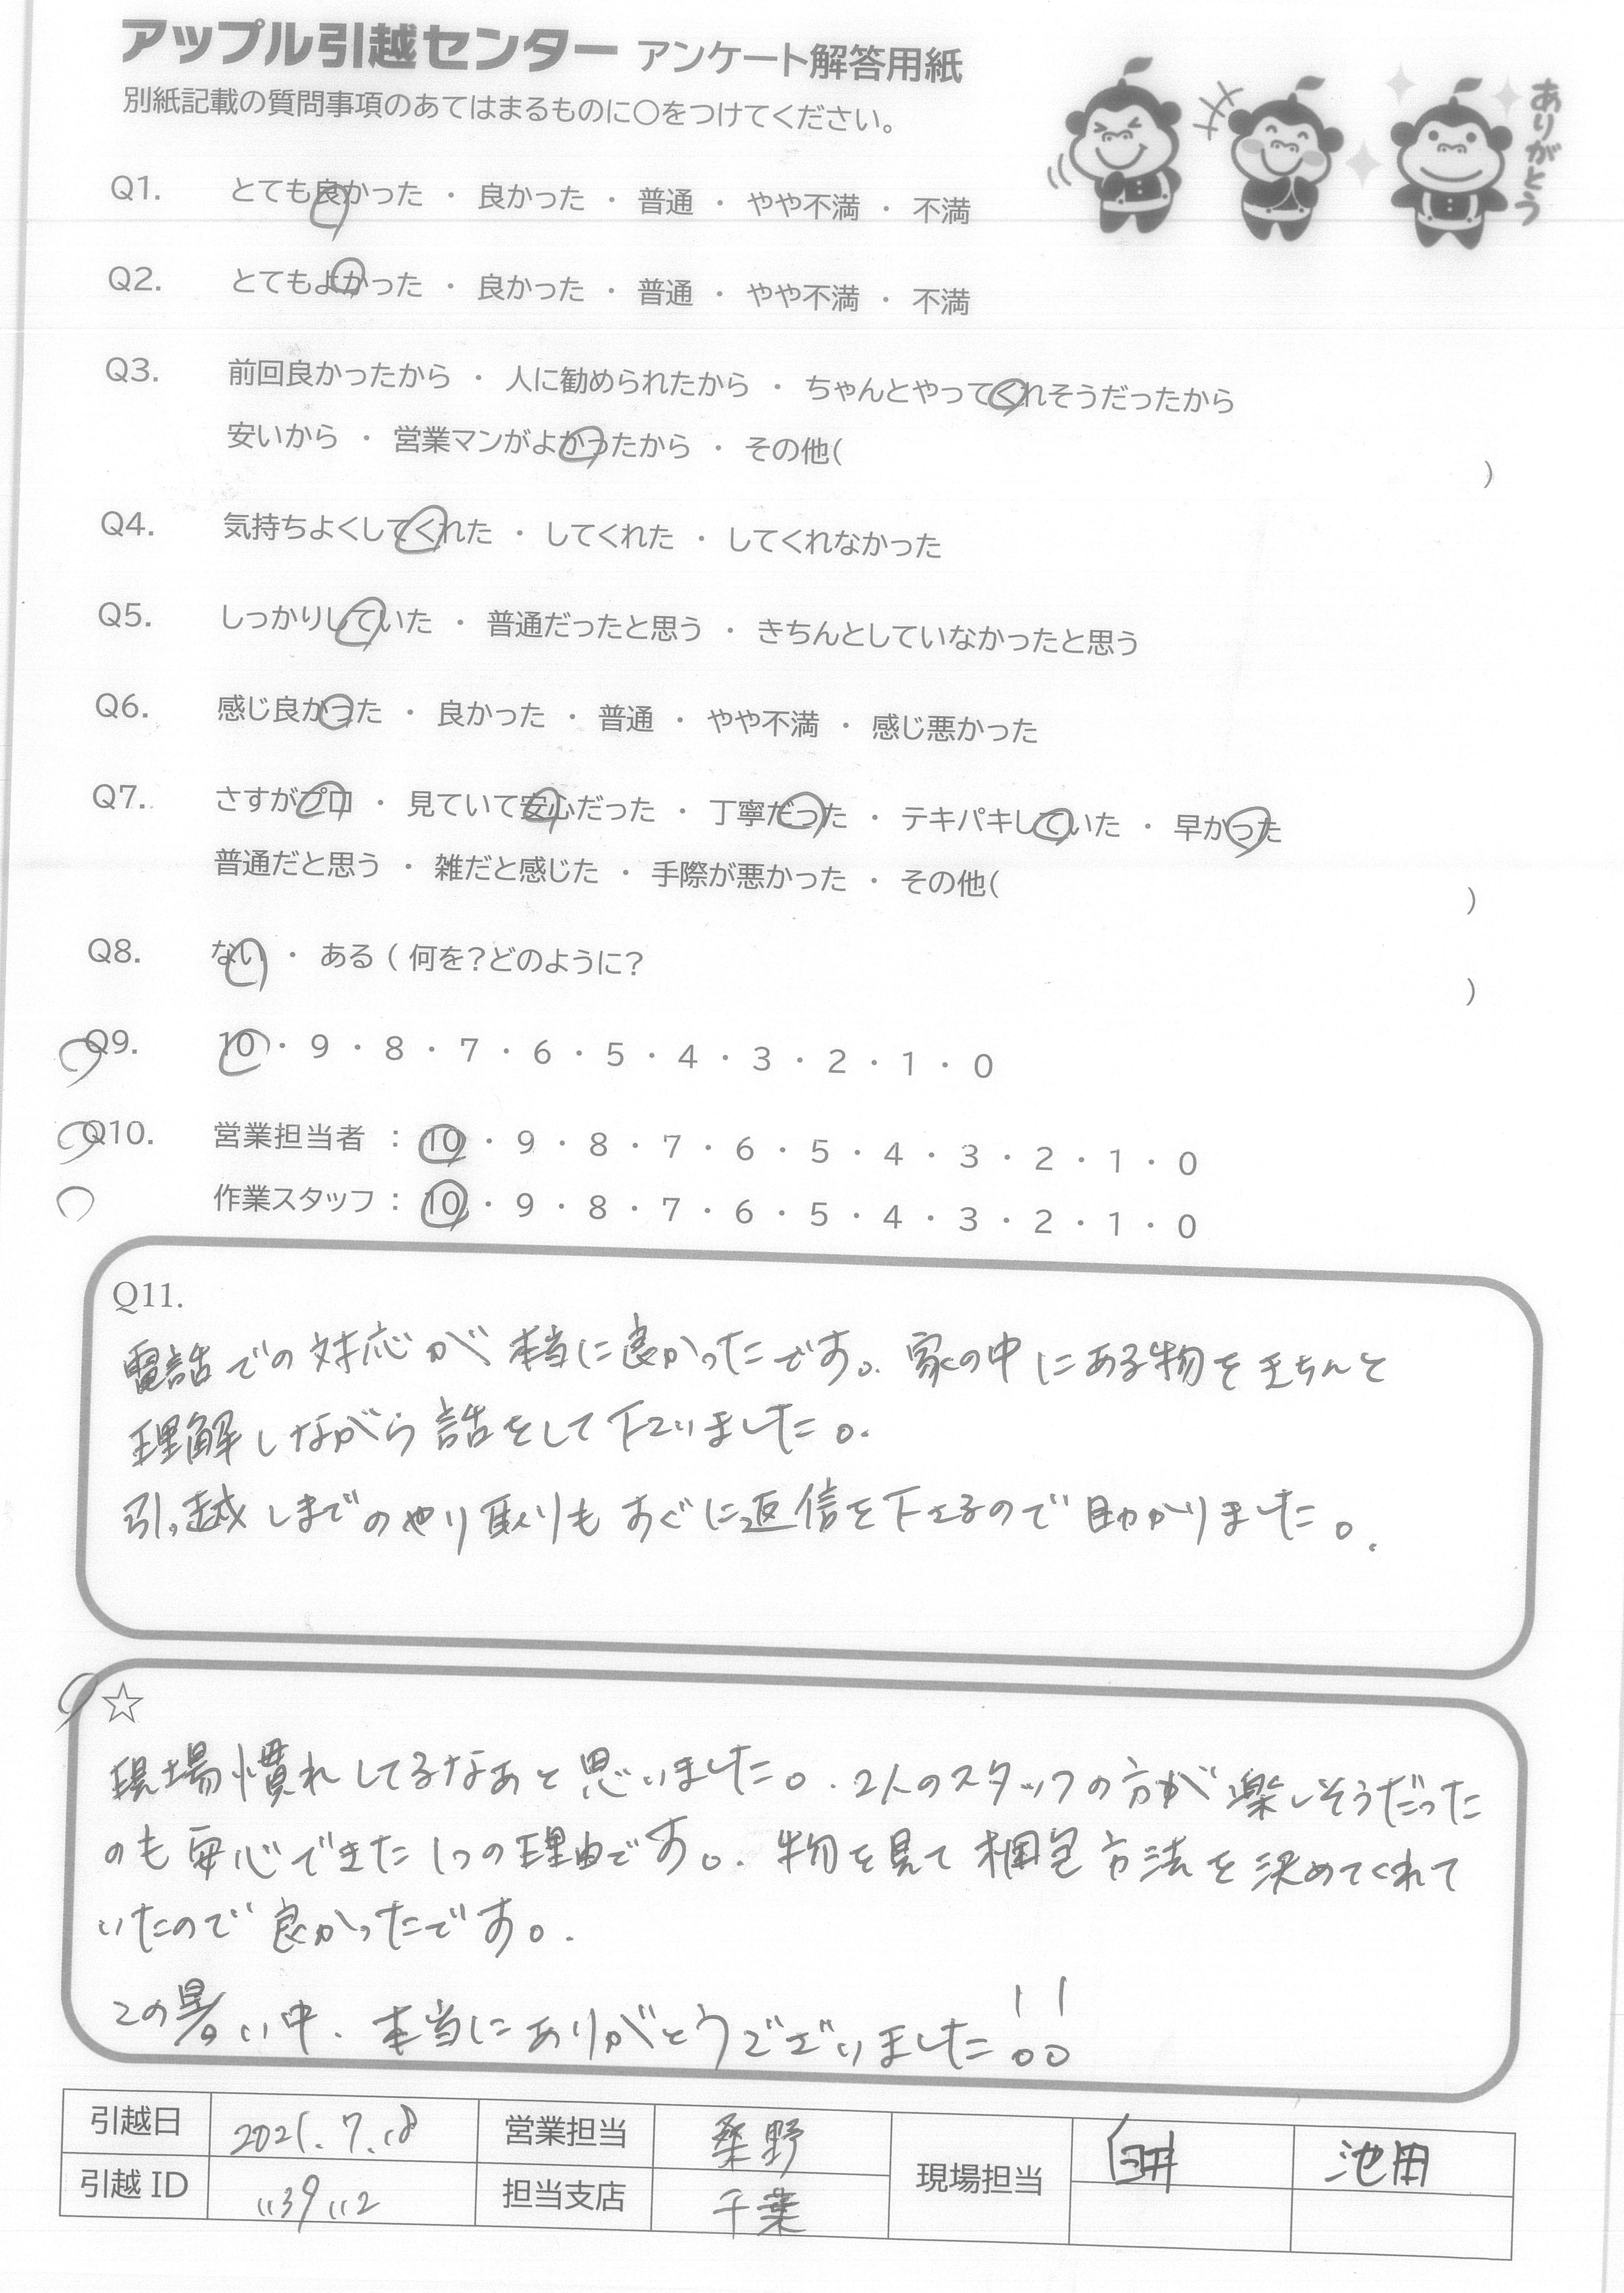 アップル引越センター アンケート解答用紙
別紙記載の質問事項のあてはまるものに○をつけてください。
ありがとう
Q1. とても良かった ・ 良かった ・ 普通 ・ やや不満 ・ 不満
Q2. とてもよかった ・ 良かった ・ 普通 ・ やや不満 ・ 不満
Q3. 前回良かったから ・ 人に勧められたから ・ ちゃんとやってくれそうだったから
安いから ・ 営業マンがよかったから ・ その他( )
Q4. 気持ちよくしてくれた ・ してくれた ・ してくれなかった
Q5. しっかりしていた ・ 普通だったと思う ・ きちんとしていなかったと思う
Q6. 感じ良かった ・ 良かった ・ 普通 ・ やや不満 ・ 感じ悪かった
Q7. さすがプロ ・ 見ていて安心だった ・ 丁寧だった ・ テキパキしていた ・ 早かった
普通だと思う ・ 雑だと感じた ・ 手際が悪かった ・ その他( )
Q8. ない ・ ある ( 何を?どのように? )
Q9. 10 ・ 9 ・ 8 ・ 7 ・ 6 ・ 5 ・ 4 ・ 3 ・ 2 ・ 1 ・ 0
Q10. 営業担当者 : 10 ・ 9 ・ 8 ・ 7 ・ 6 ・ 5 ・ 4 ・ 3 ・ 2 ・ 1 ・ 0
作業スタッフ : 10 ・ 9 ・ 8 ・ 7 ・ 6 ・ 5 ・ 4 ・ 3 ・ 2 ・ 1 ・ 0
Q11.
電話での対応が本当に良かったです。家の中にある物をきちんと
理解しながら話をして下さいました。
引っ越しまでのやり取りもすぐに返信を下さるので助かりました。
☆
現場慣れしてるなぁと思いました。2人のスタッフの方が楽しそうだった
のも安心できた1つの理由です。物を見て梱包方法を決めてくれて
いたので良かったです。
この暑い中、本当にありがとうございました!!
引越日 営業担当 桑野 現場担当 臼井 池田
引越ID 担当支店 千葉